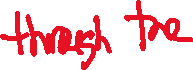 through the